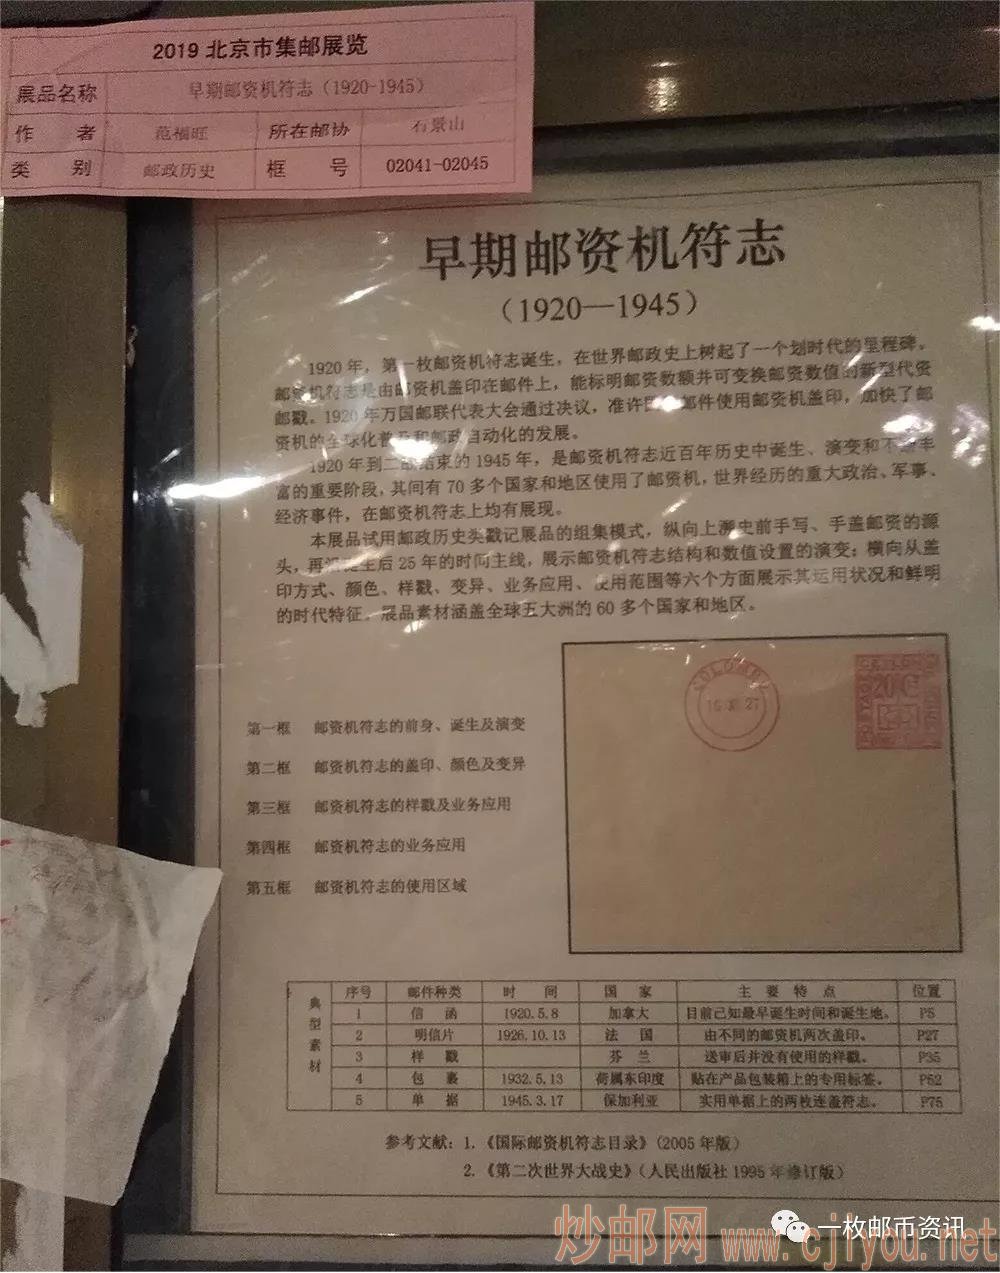 2019 北京市集邮展览
展品名称 早期邮资机符志（1920-1945）
作 者 范福旺 所在邮协 石景山
类 别 邮政历史 框 号 02041-02045
早期邮资机符志
（1920—1945）
1920 年，第一枚邮资机符志诞生，在世界邮政史上树起了一个划时代的里程碑。
邮资机符志是由邮资机盖印在邮件上，能标明邮资数额并可变换邮资数值的新型代资
邮戳。1920 年万国邮联代表大会通过决议，准许国 邮件使用邮资机盖印，加快了邮
资机的全球化普及和邮政自动化的发展。
1920 年到二战结束的 1945 年，是邮资机符志近百年历史中诞生、演变和不断丰
富的重要阶段，其间有 70 多个国家和地区使用了邮资机，世界经历的重大政治、军事、
经济事件，在邮资机符志上均有展现。
本展品试用邮政历史类戳记展品的组集模式，纵向上溯史前手写、手盖邮资的源
头，再沿诞生后 25 年的时间主线，展示邮资机符志结构和数值设置的演变；横向从盖
印方式、颜色、样戳、变异、业务应用、使用范围等六个方面展示其运用状况和鲜明
的时代特征。展品素材涵盖全球五大洲的 60 多个国家和地区。
COLOMBO
16 XI 27
CEYLON
20 C
第一框 邮资机符志的前身、诞生及演变
第二框 邮资机符志的盖印、颜色及变异
第三框 邮资机符志的样戳及业务应用
第四框 邮资机符志的业务应用
第五框 邮资机符志的使用区域
典型素材
序号 邮件种类 时 间 国 家 主 要 特 点 位置
1 信 函 1920.5.8 加拿大 目前已知最早诞生时间和诞生地。 P5
2 明信片 1926.10.13 法 国 由不同的邮资机两次盖印。 P27
3 样 戳 芬 兰 送审后并没有使用的样戳。 P35
4 包 裹 1932.5.13 荷属东印度 贴在产品包装箱上的专用标签。 P52
5 单 据 1945.3.17 保加利亚 实用单据上的两枚连盖符志。 P75
参考文献：1.《国际邮资机符志目录》（2005 年版）
2.《第二次世界大战史》（人民出版社 1995 年修订版）
一枚邮币资讯
炒邮网 www.cjiyou.net